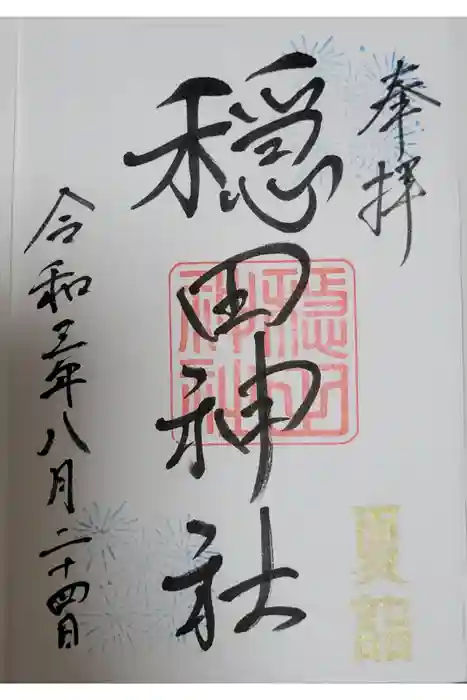 奉拝
穏田神社
穏田神社
夏詣
令和三年八月二十四日